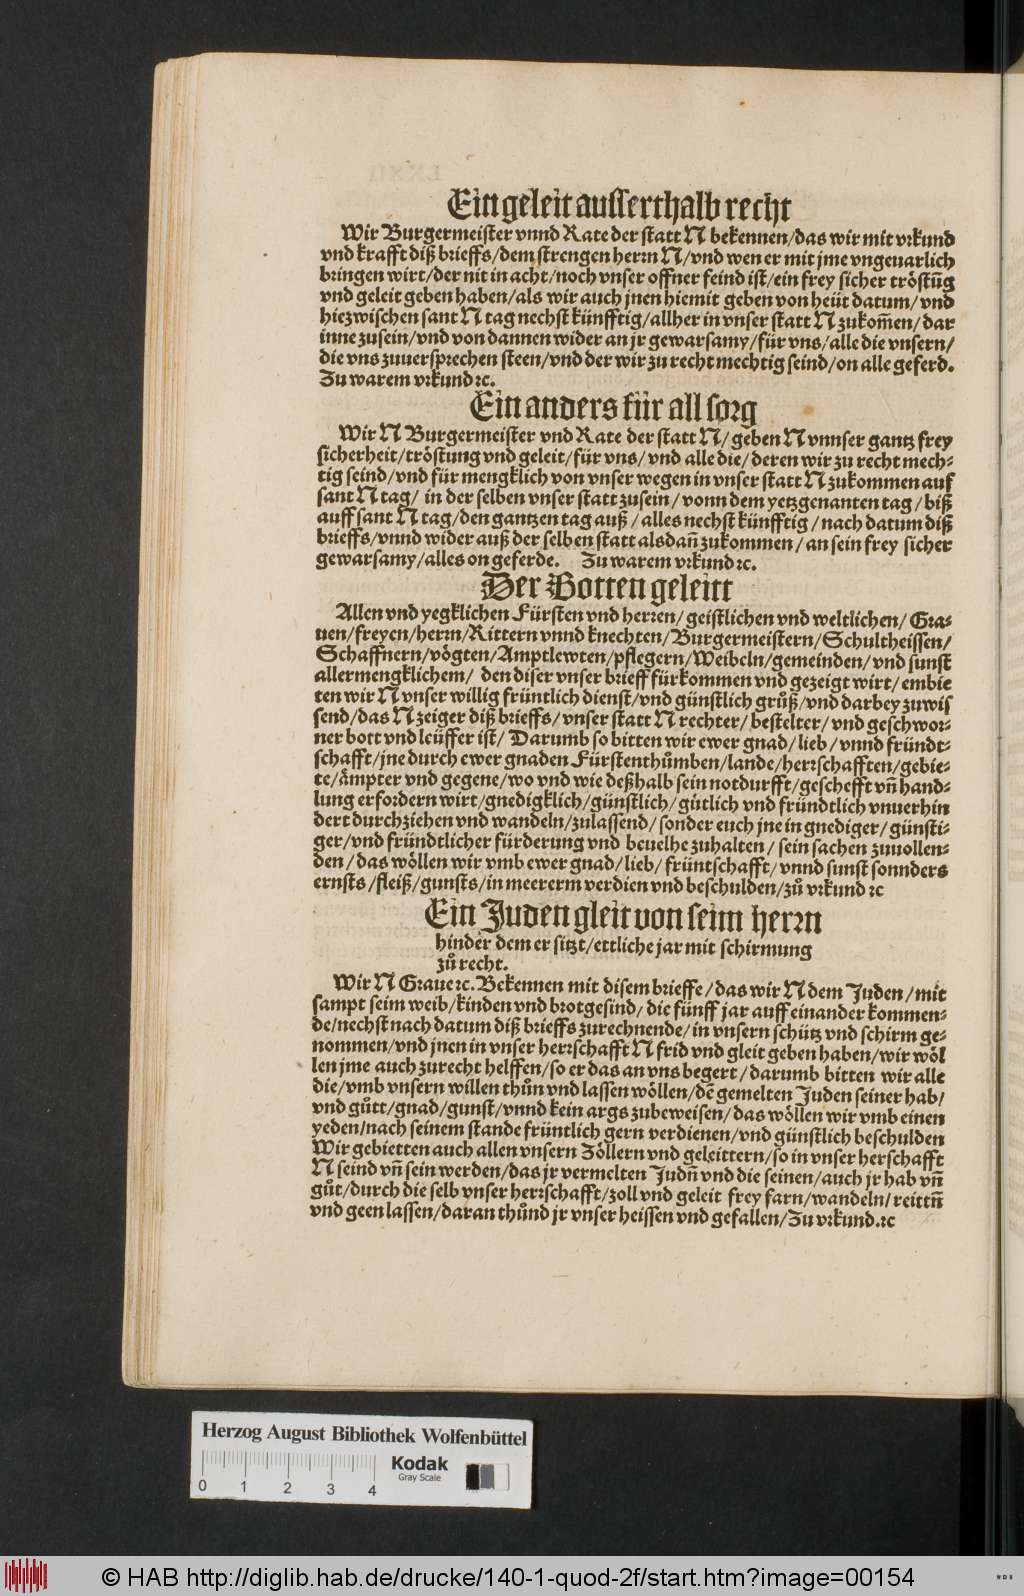 Ein geleit ausserthalb recht
Wir Burgermeister vnnd Rate der statt N bekennen/das wir mit vrkund
vnd krafft diß brieffs/dem strengen herrn N/vnd wen er mit jme vngeuarlich
bringen wirt/der nit in acht/noch vnser offner feind ist/ein frey sicher tröstūg
vnd geleit geben haben/als wir auch jnen hiemit geben von heüt datum/vnd
hiezwischen sant N tag nechst künfftig/allher in vnser statt N zukom̄en/dar
inne zusein/vnd von dannen wider an jr gewarsamy/für vns/alle die vnsern/
die vns zuuersprechen steen/vnd der wir zu recht mechtig seind/on alle geferd.
Zu warem vrkund ꝛc.
Ein anders für all sorg
Wir N Burgermeister vnd Rate der statt N/geben N vnnser gantz frey
sicherheit/tröstung vnd geleit/für vns/vnd alle die/deren wir zu recht mech-
tig seind/vnd für mengklich von vnser wegen in vnser statt N zukommen auf
sant N tag/ in der selben vnser statt zusein/vonn dem yetzgenanten tag/biß
auff sant N tag/den gantzen tag auß/alles nechst künfftig/nach datum diß
brieffs/vnnd wider auß der selben statt alsdañ zukommen/an sein frey sicher
gewarsamy/alles on geferde. Zu warem vrkund ꝛc.
Der Botten geleitt
Allen vnd yegklichen Fürsten vnd herren/geistlichen vnd weltlichen/Gra-
uen/freyen/herrn/Rittern vnnd knechten/Burgermeistern/Schultheissen/
Schaffnern/vögten/Amptlewten/pflegern/Weibeln/gemeinden/vnd sunst
allermengklichem/ den diser vnser brieff fürkommen vnd gezeigt wirt/embie
ten wir N vnser willig früntlich dienst/vnd günstlich grůß/vnd darbey zuwis
send/das N zeiger diß brieffs/vnser statt N rechter/bestelter/vnd geschwor-
ner bott vnd leüffer ist/ Darumb so bitten wir ewer gnad/lieb/vnnd fründt-
schafft/jne durch ewer gnaden Fürstenthůmben/lande/herrschafften/gebie-
te/ämpter vnd gegene/wo vnd wie deßhalb sein notdurfft/geschefft vñ hand-
lung erfordern wirt/gnedigklich/günstlich/gütlich vnd fründtlich vnuerhin
dert durchziehen vnd wandeln/zulassend/sonder euch jne in gnediger/günsti-
ger/vnd fründtlicher fürderung vnd beuelhe zuhalten/sein sachen zuuollen-
den/das wöllen wir vmb ewer gnad/lieb/früntschafft/vnnd sunst sonnders
ernsts/fleiß/gunsts/in meererm verdien vnd beschulden/zů vrkund ꝛc
Ein Juden gleit von seim herrn
hinder dem er sitzt/ettliche jar mit schirmung
zů recht.
Wir N Graue ꝛc. Bekennen mit disem brieffe/das wir N dem Juden/mit
sampt seim weib/kinden vnd brotgesind/die fünff jar auff einander kommen-
de/nechst nach datum diß brieffs zurechnende/in vnsern schütz vnd schirm ge-
nommen/vnd jnen in vnser herrschafft N frid vnd gleit geben haben/wir wöl
len jme auch zurecht helffen/so er das an vns begert/darumb bitten wir alle
die/vmb vnsern willen thůn vnd lassen wöllen/dē gemelten Juden seiner hab/
vnd gůtt/gnad/gunst/vnnd kein args zubeweisen/das wöllen wir vmb einen
yeden/nach seinem stande früntlich gern verdienen/vnd günstlich beschulden
Wir gebietten auch allen vnsern Zöllern vnd geleittern/so in vnser herschafft
N seind vñ sein werden/das jr vermelten Judñ vnd die seinen/auch jr hab vñ
gůt/durch die selb vnser herrschafft/zoll vnd geleit frey farn/wandeln/reittñ
vnd geen lassen/daran thůnd jr vnser heissen vnd gefallen/Zu vrkund.ꝛc
Herzog August Bibliothek Wolfenbüttel
Kodak
Gray Scale
0 1 2 3 4
© HAB http://diglib.hab.de/drucke/140-1-quod-2f/start.htm?image=00154